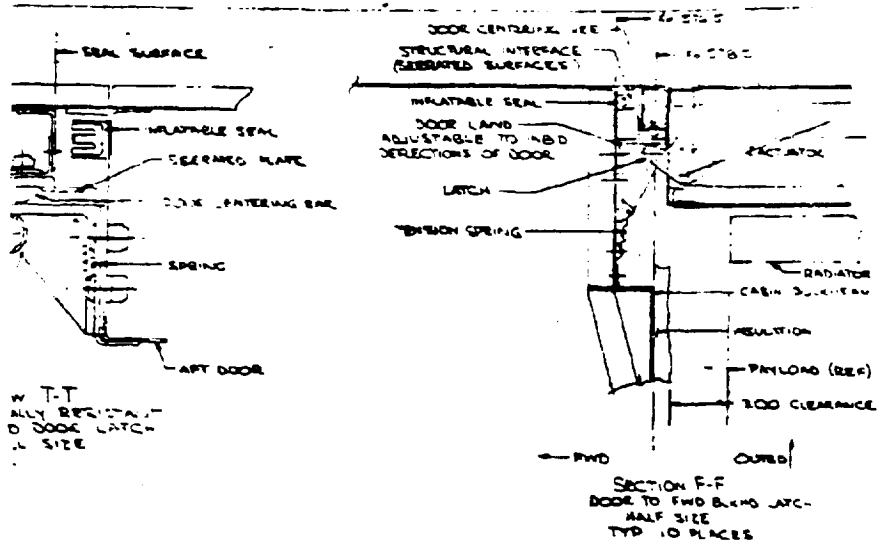 SEAL SURFACE
INFLATABLE SEAL
SERRATED PLATE
CENTERING BAR
SPRING
AFT DOOR
T-T
LATCH
SIZE
DOOR CENTERING VEE
STRUCTURAL INTERFACE
(SERRATED SURFACES)
INFLATABLE SEAL
DOOR LAND
ADJUSTABLE TO INBD
DIRECTIONS OF DOOR
LATCH
ACTUATOR
TENSION SPRING
RADIATOR
CABIN BULKHEAD
INSULATION
PAYLOAD (REF)
CLEARANCE
FWD
OUTBD
SECTION F-F
DOOR TO FWD BLKHD LATCH
HALF SIZE
TYP 10 PLACES